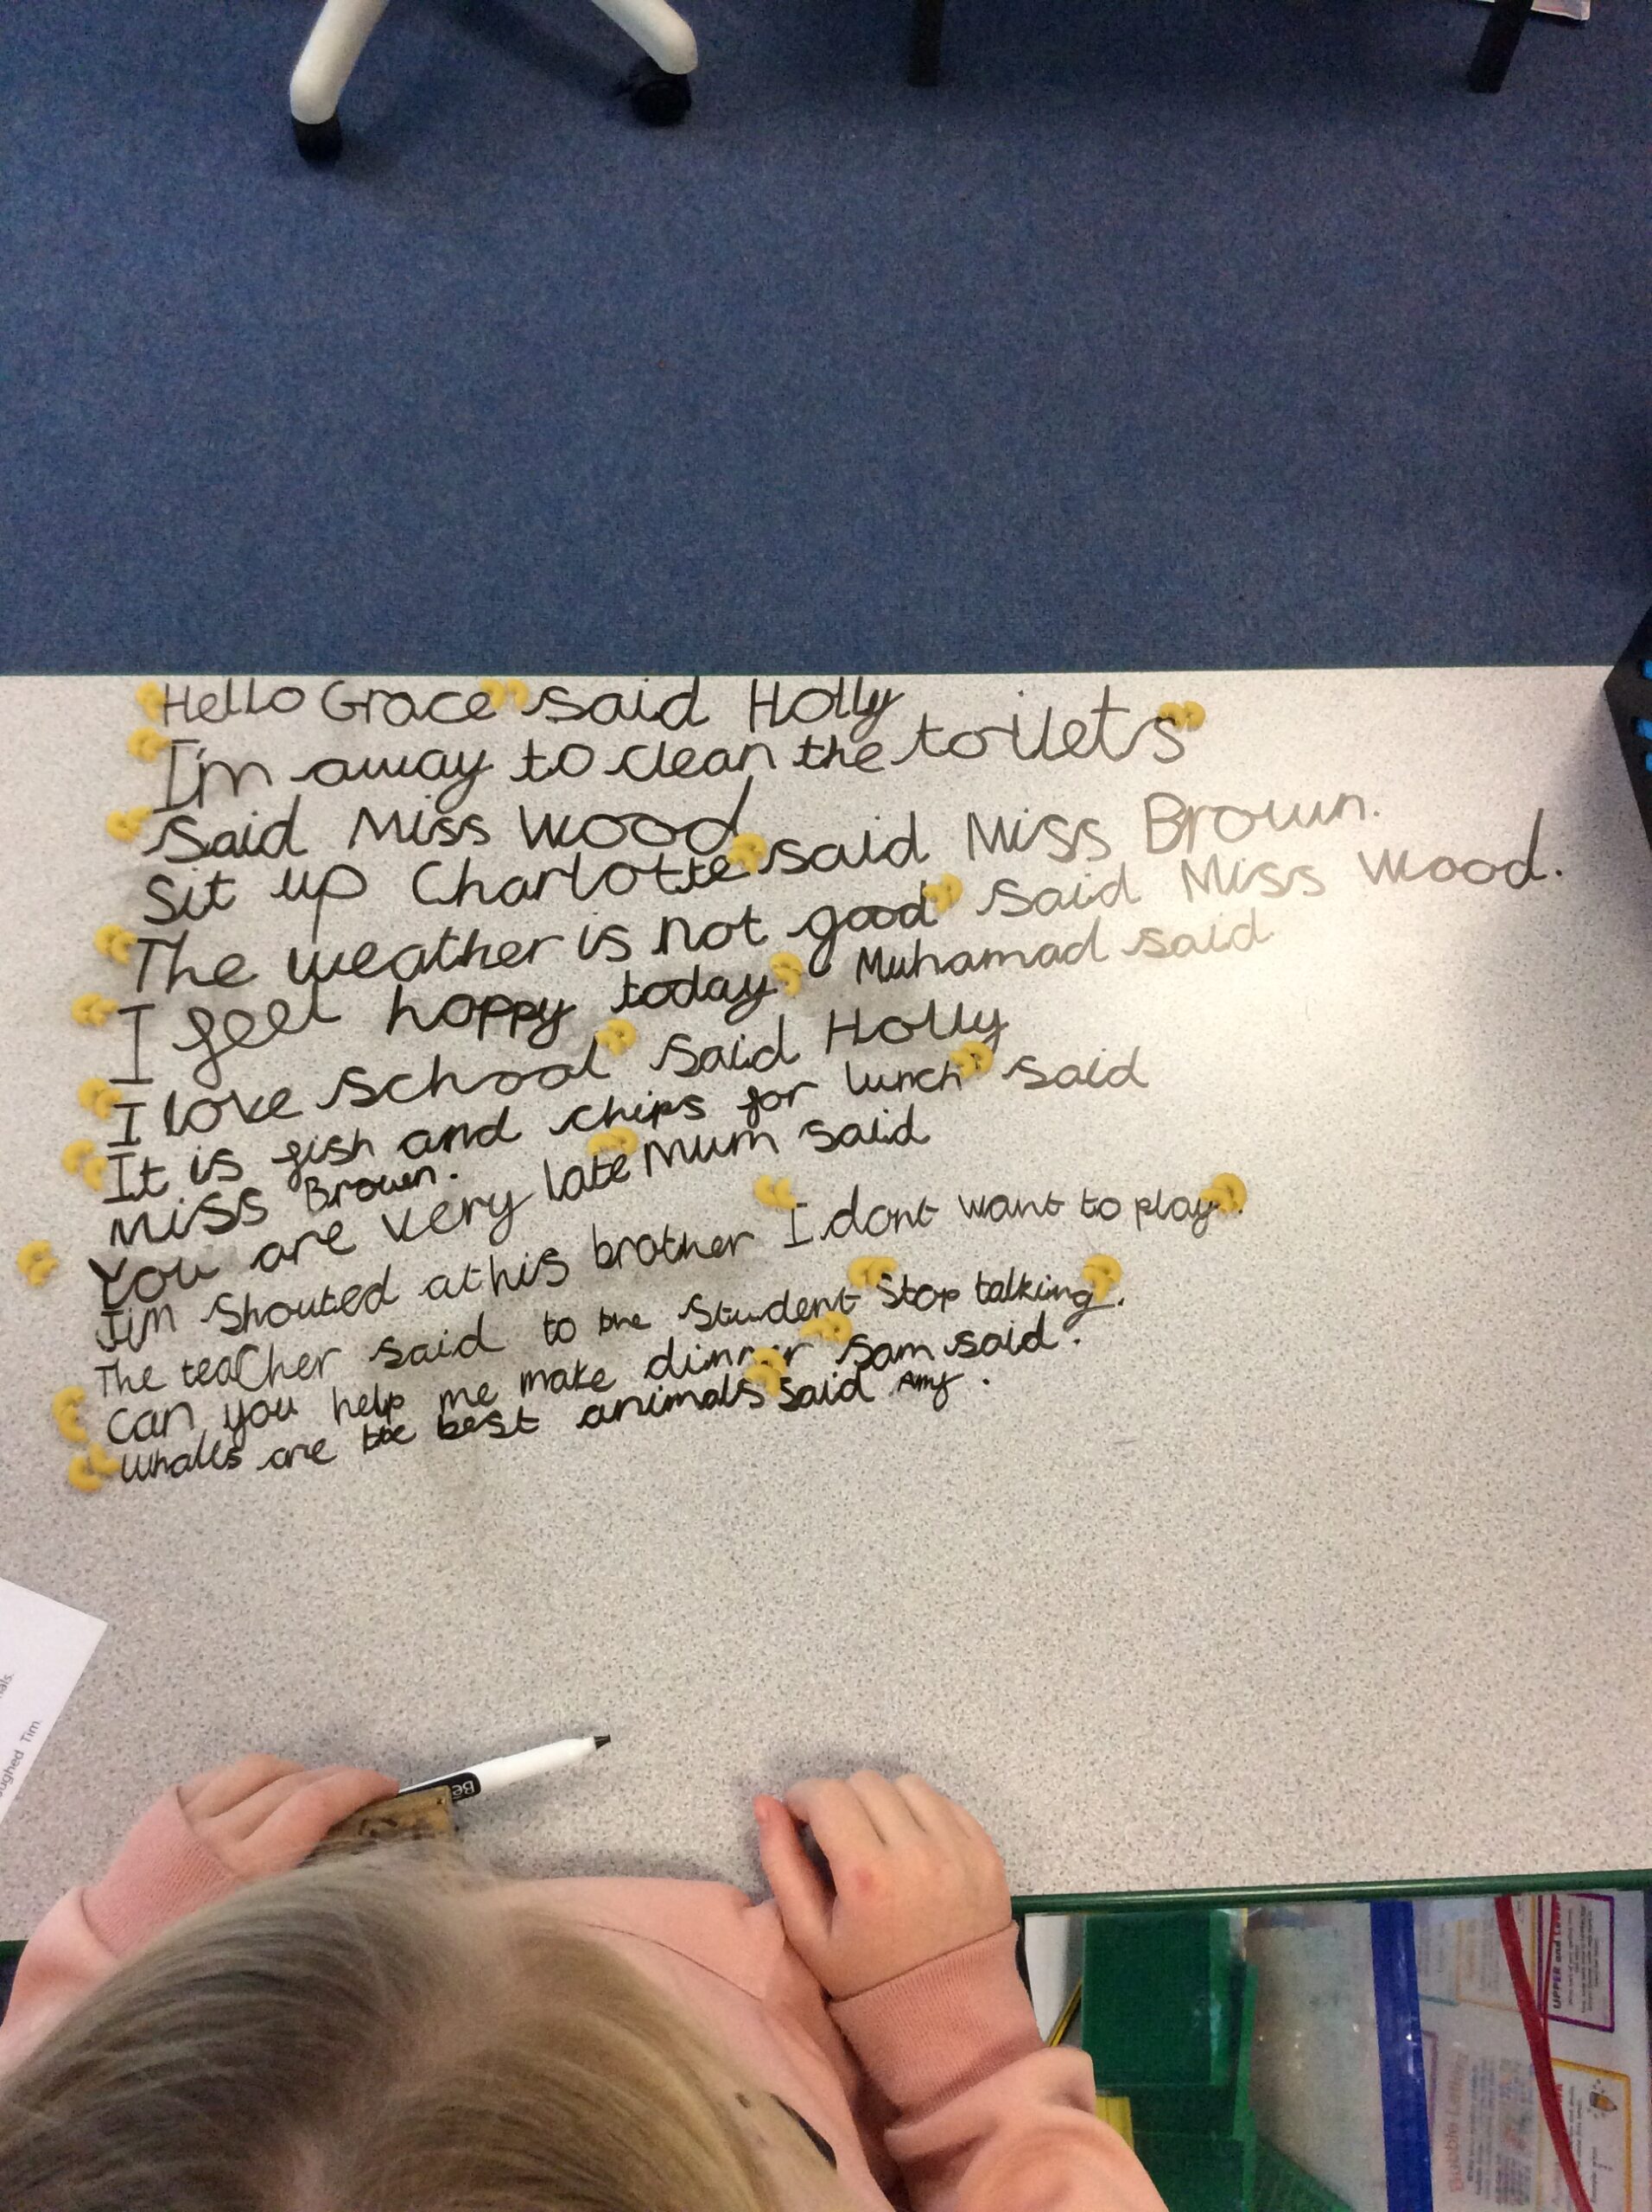 "Hello Grace" said Holly
"I'm away to clean the toilets"
"said Miss Wood
Sit up Charlotte" said Miss Brown.
"The weather is not good" said Miss Wood.
"I feel happy today" Muhamad said.
"I love school" said Holly
"It is fish and chips for lunch" said
Miss Brown.
"You are very late" Mum said
Jim shouted at his brother "I dont want to play".
The teacher said to the Student "Stop talking".
"Can you help me make dinner" Sam said.
"Whales are the best animals" said Amy.
als.
ughed Tim.
Be
UPPER and